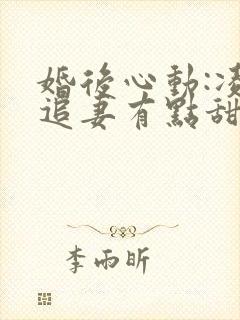 婚後心動:凌
追妻有點甜
李雨昕